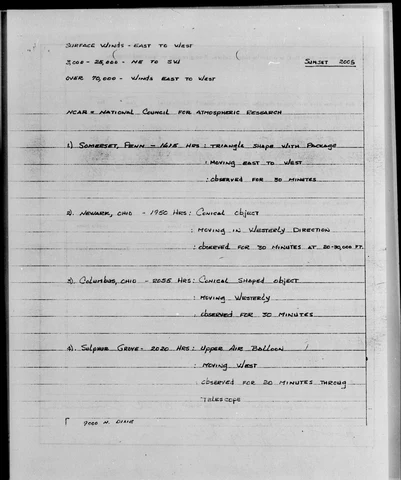 SURFACE WINDS - EAST TO WEST
5,000 - 25,000 - NE TO SW SUNSET 2005
OVER 70,000 - WINDS EAST TO WEST
NCAR = NATIONAL COUNCIL FOR ATMOSPHERIC RESEARCH
1) SOMERSET, PENN - 1615 HRS: TRIANGLE SHAPE WITH PACKAGE
: MOVING EAST TO WEST
: OBSERVED FOR 30 MINUTES
2) NEWARK, OHIO - 1950 HRS: CONICAL OBJECT
: MOVING IN WESTERLY DIRECTION
: OBSERVED FOR 30 MINUTES AT 20-30,000 FT.
3) COLUMBUS, OHIO - 2035 HRS: CONICAL SHAPED OBJECT
: MOVING WESTERLY
: OBSERVED FOR 30 MINUTES
4) SULPHUR GROVE - 2020 HRS: UPPER AIR BALLOON
: MOVING WEST
: OBSERVED FOR 20 MINUTES THROUG
TELESCOPE
9000 N. DIXIE